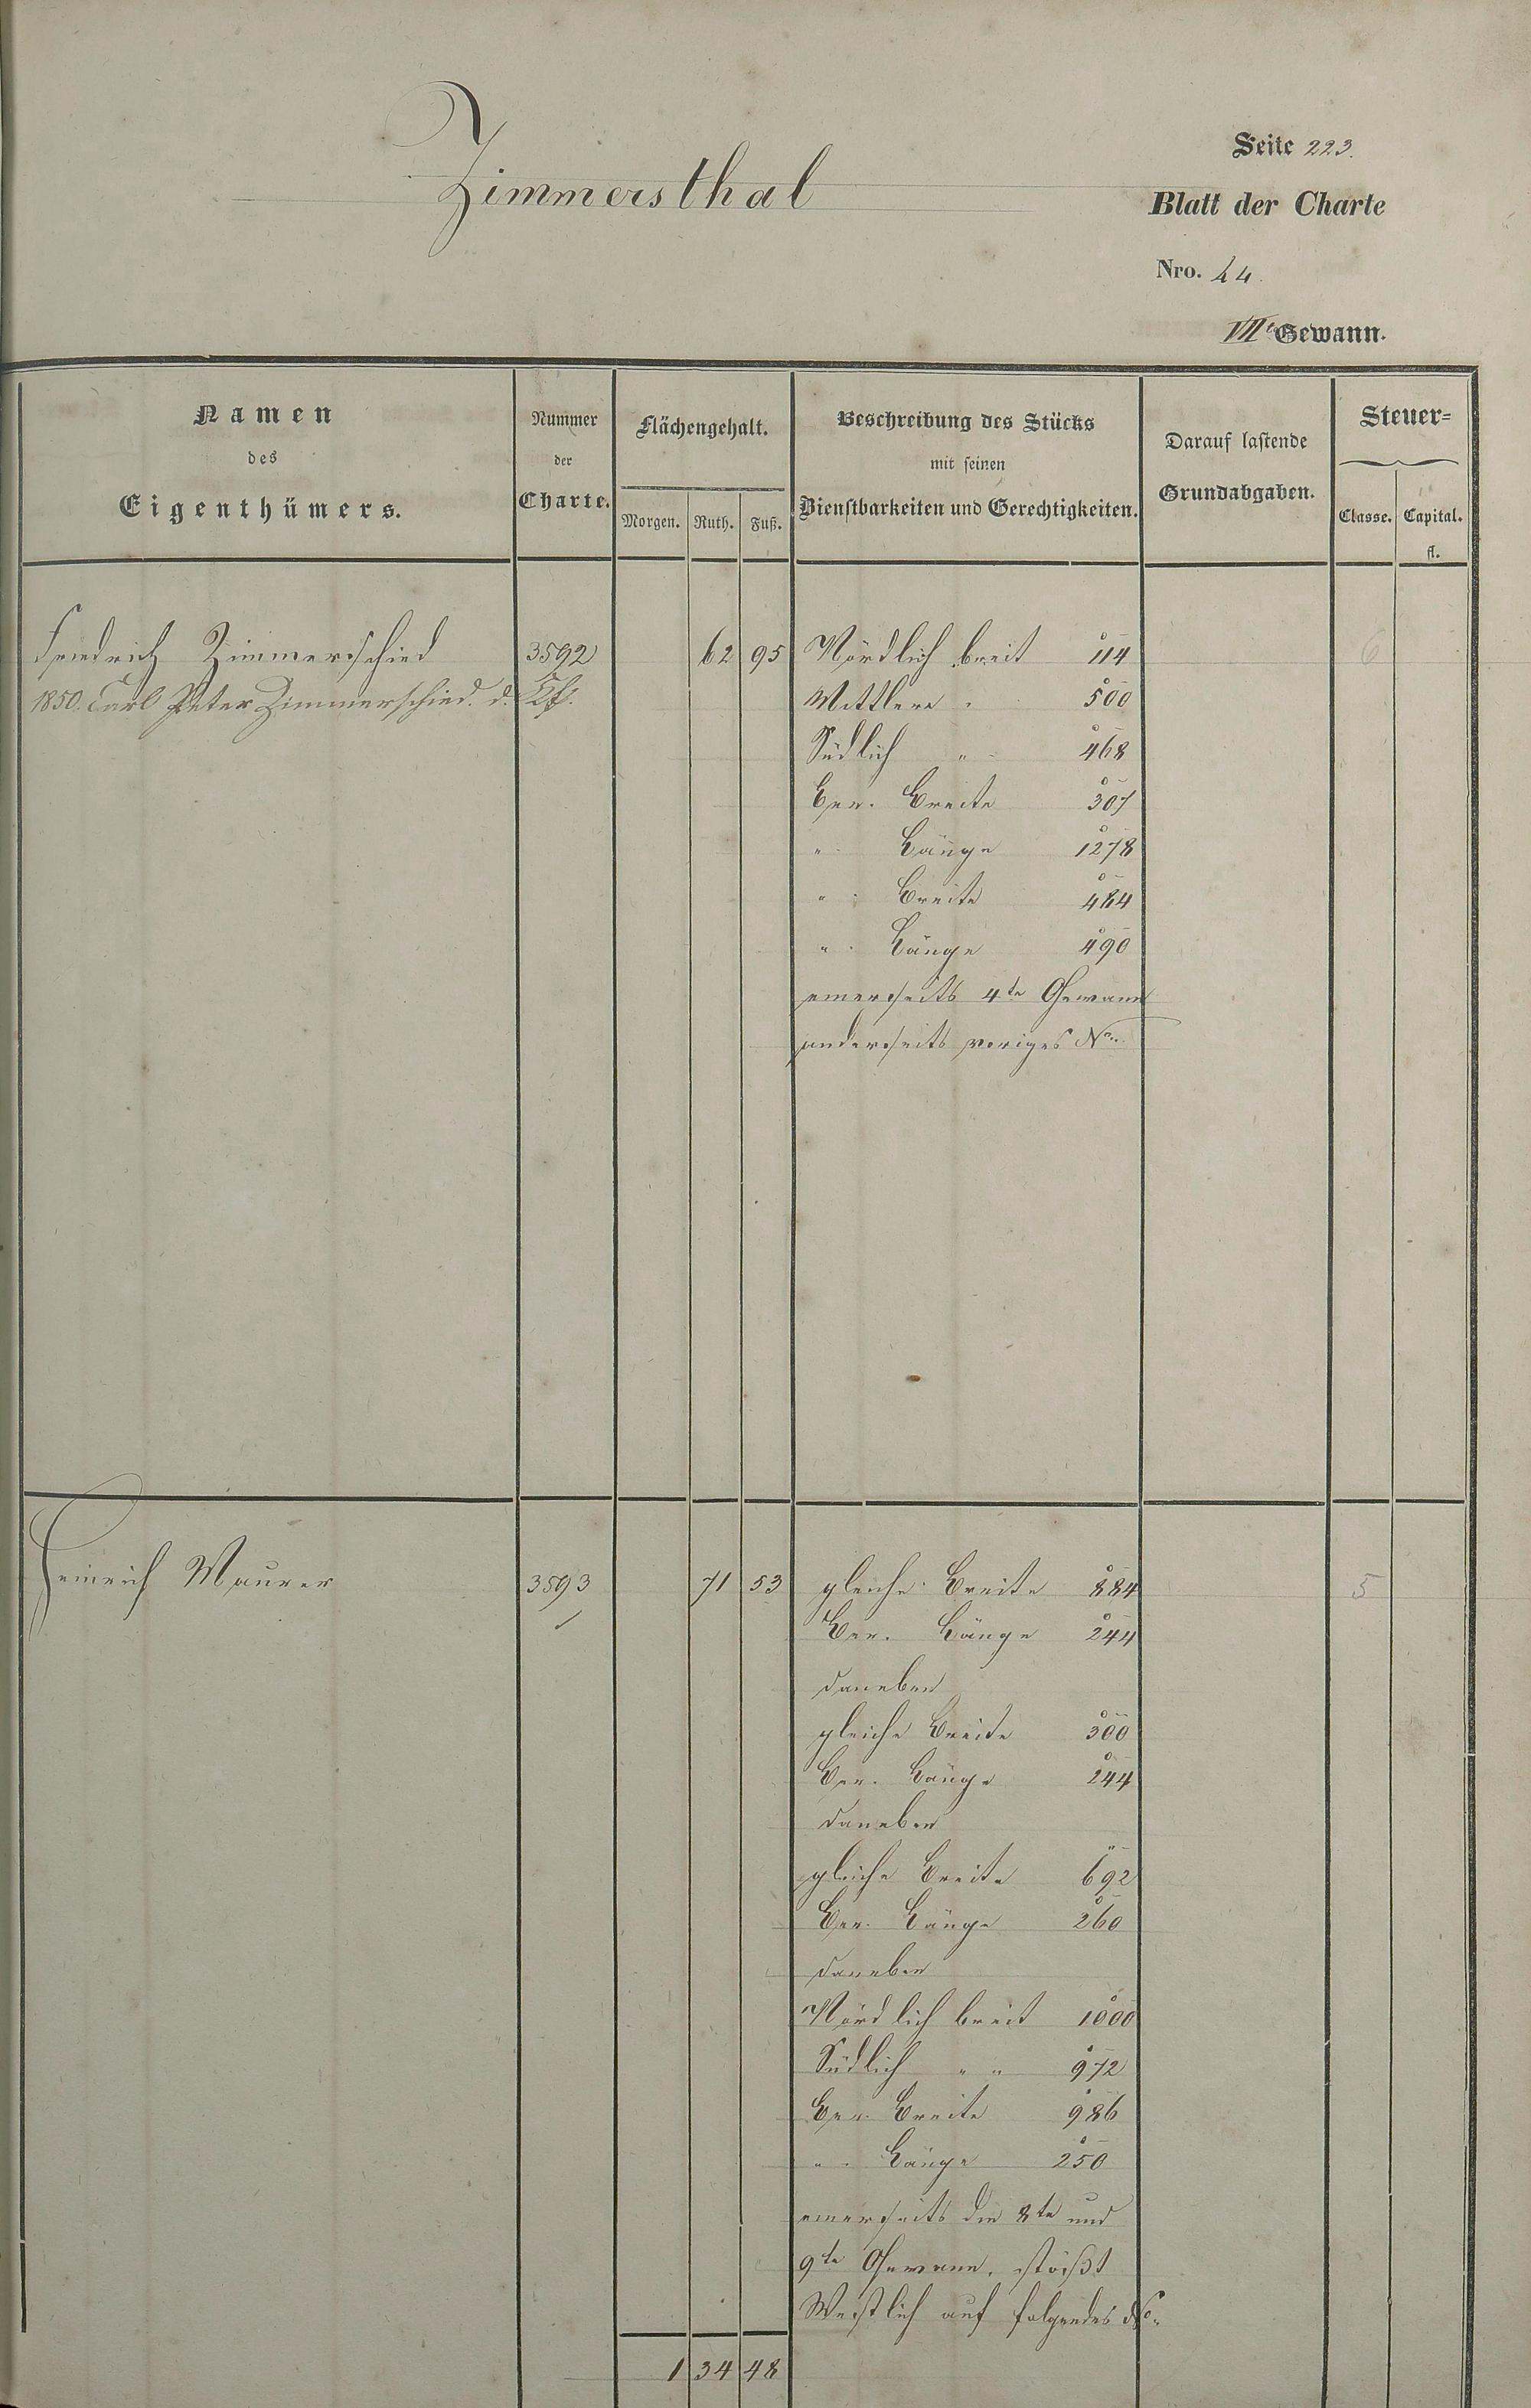 Zimmersthal
Seite 223.
Blatt der Charte
Nro. 44.
VIIte Gewann.
Namen
des
Eigenthümers.
Nummer
der
Charte.
Flächengehalt.
Morgen. Ruth. Fuß.
Beschreibung des Stücks
mit seinen
Dienstbarkeiten und Gerechtigkeiten.
Darauf lastende
Grundabgaben.
Steuer=
Classe. Capital.
fl.
Friedrich Zimmerschied 3592 62 95 Nördlich breit 114 6
1850. Carl Peter Zimmerschied. d. Mittlere " 500
Südlich " 468
Ger. Breite 307
" Länge 1278
" Breite 484
" Länge 490
einerseits 4te Gewann
anderseits voriges No.
Heinrich Maurer 3593 71 53 gleiche Breite 884 5
Ger. Länge 244
daneben
gleiche Breite 300
Ger. Länge 244
daneben
gleiche Breite 692
Ger. Länge 260
daneben
Nördlich breit 1000
Südlich " " 972
Ger. Breite 986
" Länge 250
einerseits die 8te und
9te Gewann, stößt
Westlich auf folgendes No.
1 34 48